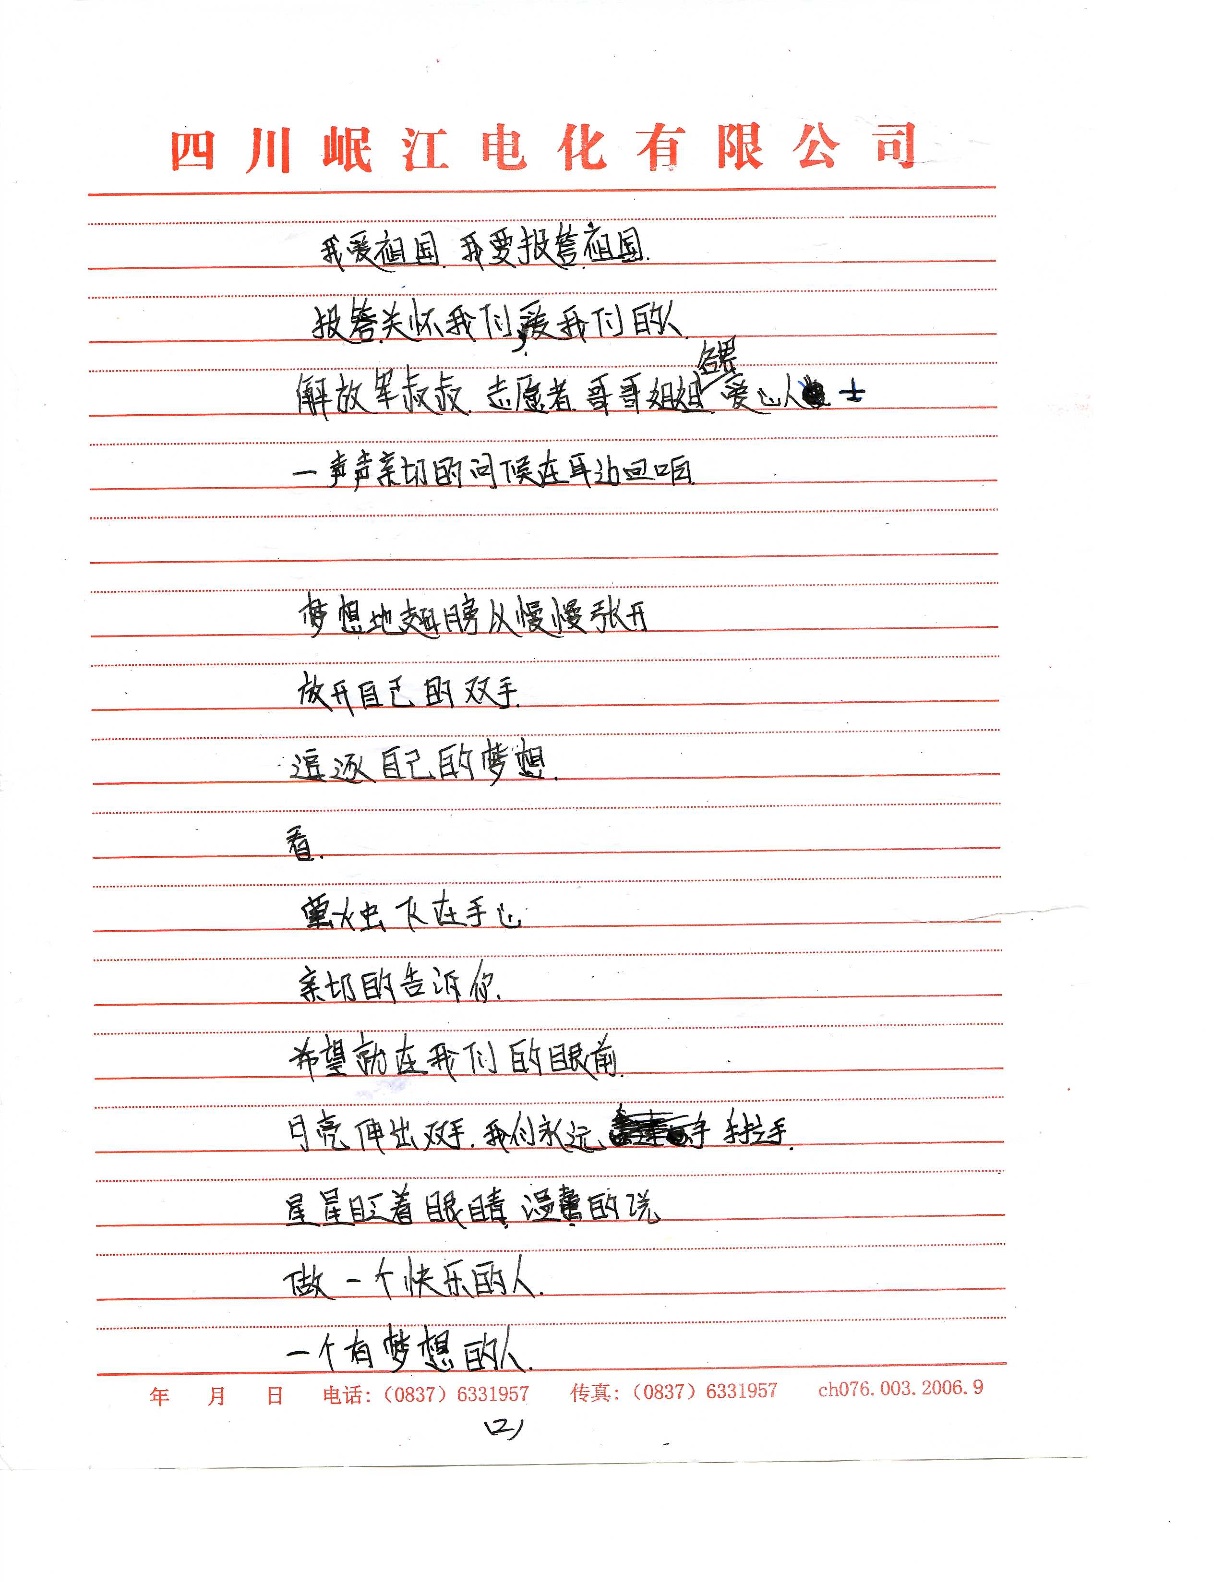 四川岷江电化有限公司
我爱祖国.我要报答祖国.
报答关怀我们,爱我们的人
解放军叔叔.志愿者.哥哥姐姐 爱心人士
一声声亲切的问候在耳边回响
梦想地翅膀从慢慢张开
放开自己的双手.
追逐自己的梦想.
看.
萤火虫飞在手心
亲切的告诉你.
希望就在我们的眼前.
月亮伸出双手.我们永远手拉手.
星星眨着眼睛.温馨的说
做一个快乐的人.
一个有梦想的人.
年 月 日 电话:(0837)6331957 传真:(0837)6331957 ch076.003.2006.9
(2)